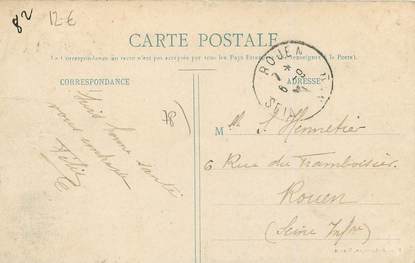 82 12 €
CARTE POSTALE
La Correspondance au recto n'est pas acceptée par tous les Pays Étrangers (Se renseigner à la Poste).
CORRESPONDANCE
ADRESSE
ROUEN
7 *
6 - 9
SEINE
78
Très bonne santé
vous embrasse
M
6 Rue du Framboisier
Rouen
(Seine Infre)